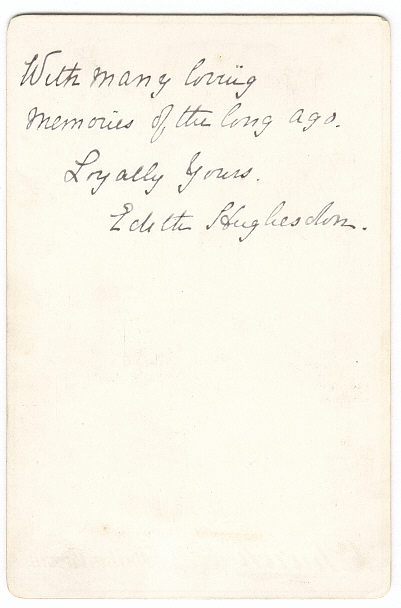 With many loving
memories of the long ago.
Loyally Yours.
Edith Hughesdon.